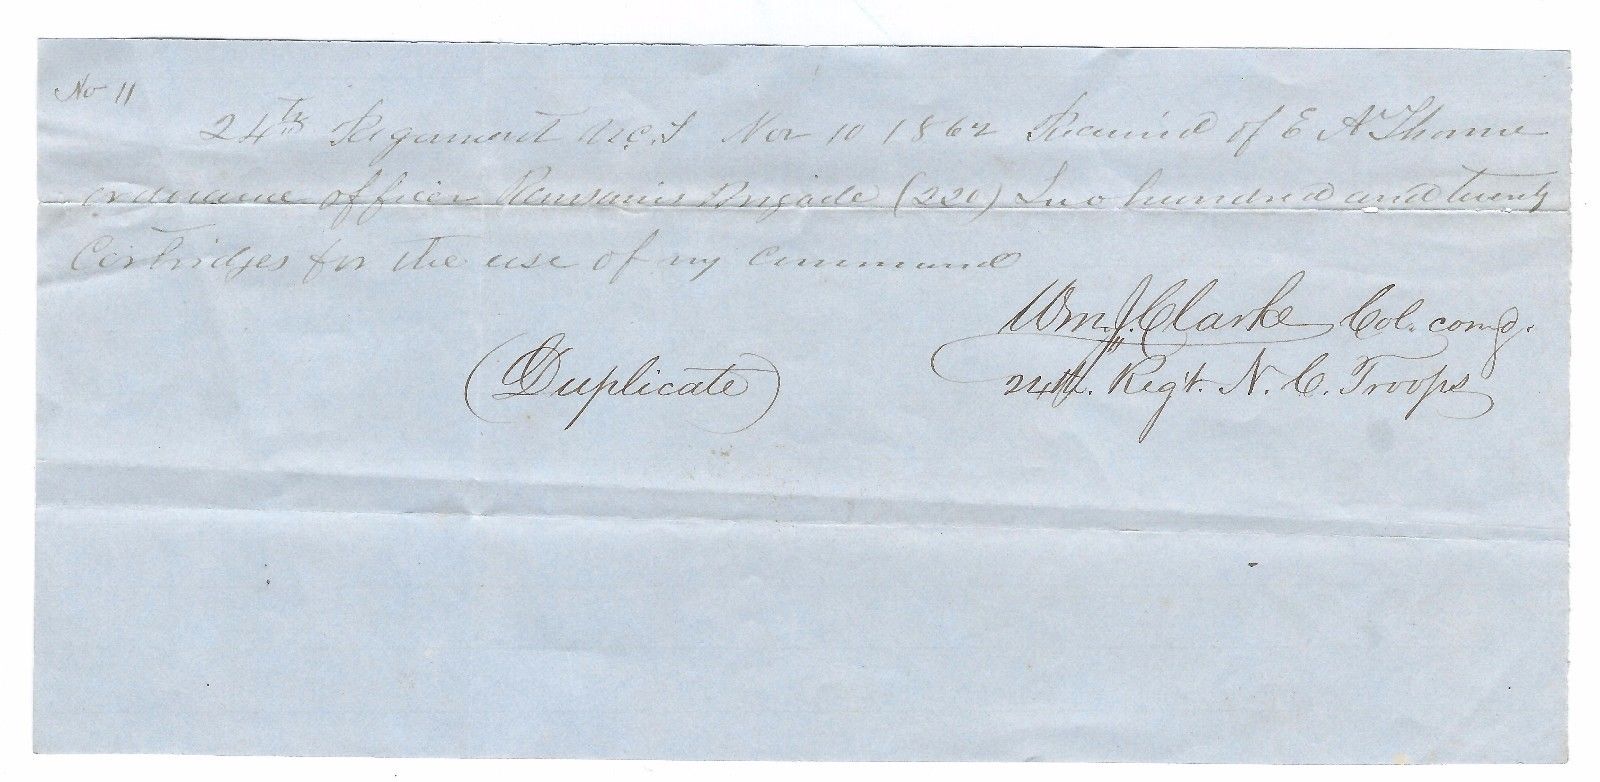 No 11
24th Regament N.C.T Nov 10 1862 Received of E A Thorne
ordnance officer Ransom's Brigade (220) Two hundred and twenty
Cartridges for the use of my command
Wm. J. Clarke Col. comd'g.
24th. Reg't. N. C. Troops
(Duplicate)